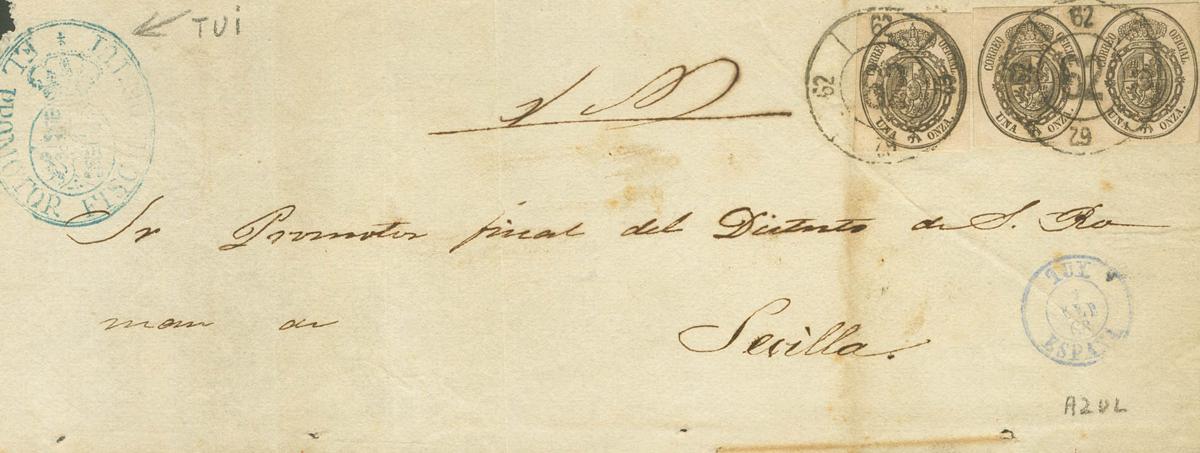 TUI
EL PROMOTOR FISCAL
CORREO OFICIAL
UNA ONZA.
CORREO OFICIAL
UNA ONZA.
CORREO OFICIAL
UNA ONZA.
62
62
62
62
62
62
S N
Sr Promotor fiscal del Distrito de S. Ro
man de
Sevilla.
TUY
SEP
68
ESPAÑA
AZUL